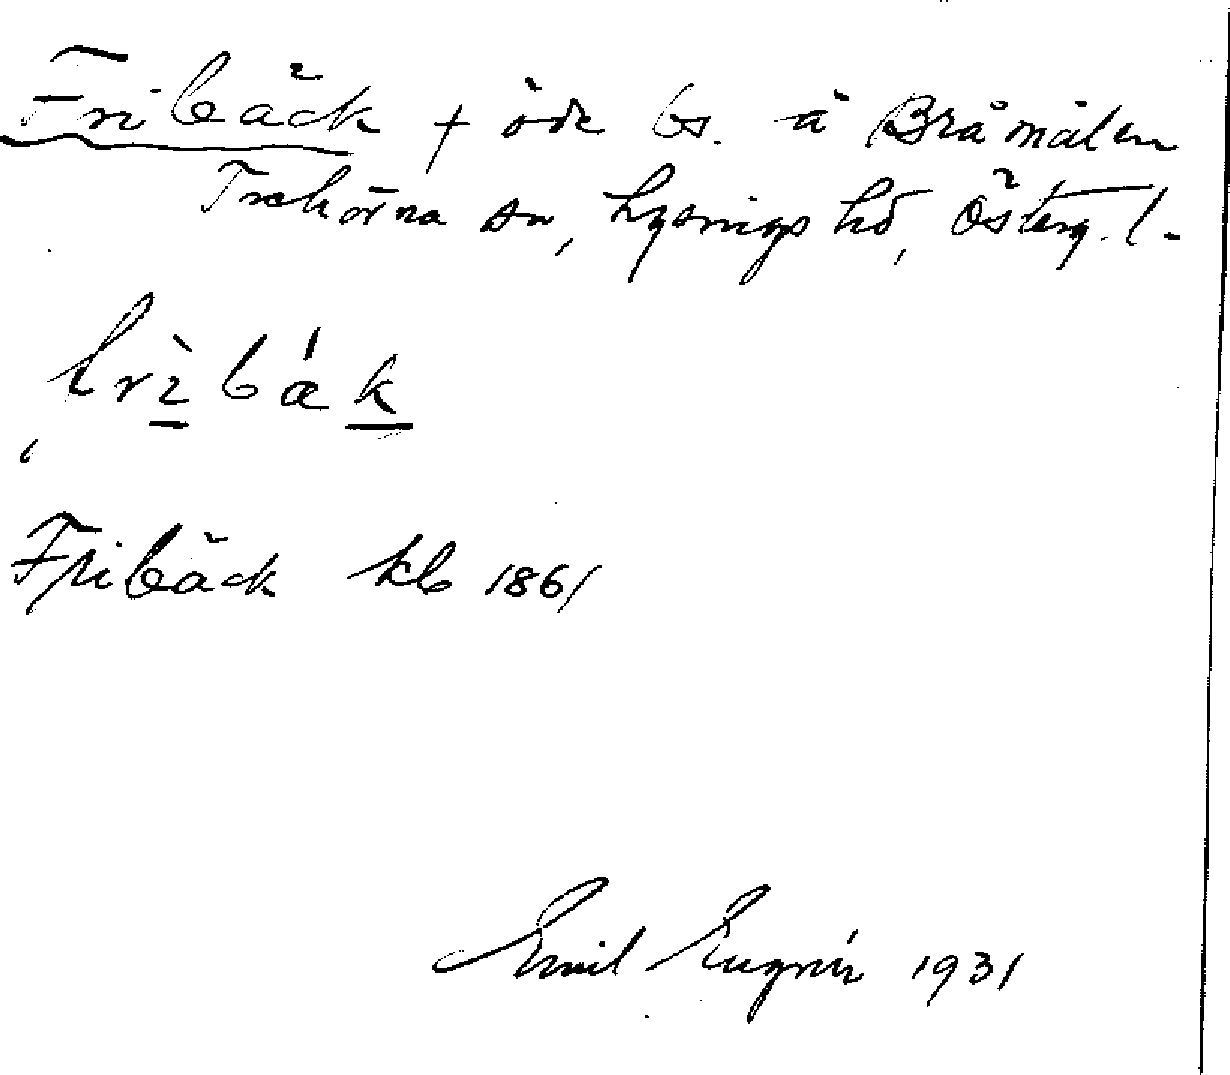 Fribäck + öde bs. å Bråmålen
Trehörna sn, Lysings hd, Österg. l.
frìbák
Fribäck kb 1861
Emil Eugnér 1931